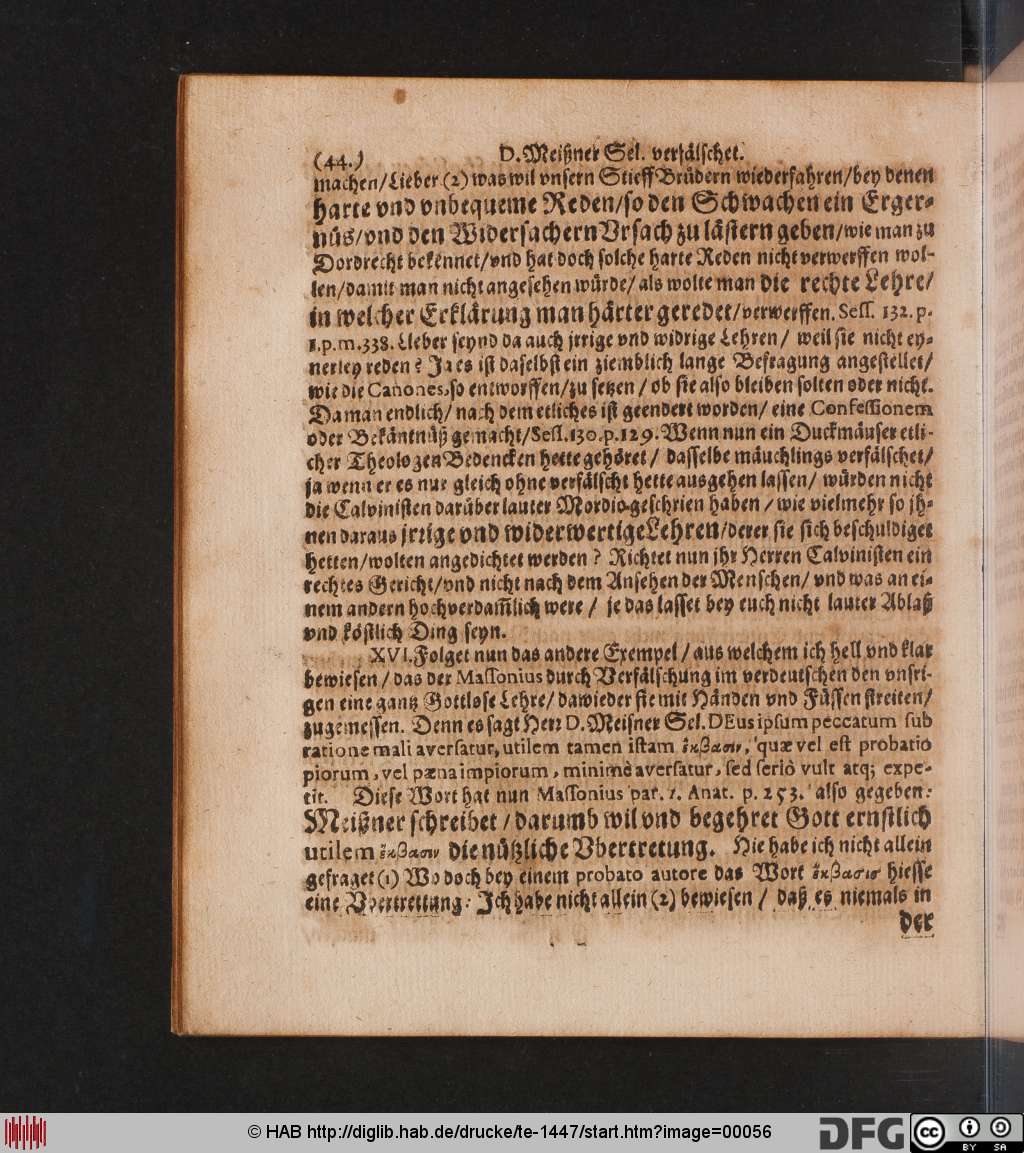 (44.) D. Meißner Sel. verfälschet.
machen/Lieber (2) was wil vnsern Stieff Brüdern wiederfahren/bey denen
harte vnd vnbequeme Reden/so den Schwachen ein Erger-
nüs/vnd den Widersachern Vrsach zu lästern geben/wie man zu
Dordrecht bekennet/vnd hat doch solche harte Reden nicht verwerffen wol-
len/damit man nicht angesehen würde/als wolte man die rechte Lehre/
in welcher Erklärung man härter geredet/verwerffen. Sess. 132. p.
1.p.m.338. Lieber seynd da auch jrrige vnd widrige Lehren/ weil sie nicht ey-
nerley reden? Ja es ist daselbst ein ziemblich lange Befragung angestellet/
wie die Canones, so entworffen/zu setzen/ ob sie also bleiben solten oder nicht.
Da man endlich/nach dem etliches ist geendert worden/ eine Confessionem
oder Bekäntnüß gemacht/Sess. 130. p. 129. Wenn nun ein Duckmäuser etli-
cher Theologen Bedencken hette gehöret/ dasselbe mäuchlings verfälschet/
ja wenn er es nur gleich ohne verfälscht hette ausgehen lassen/ würden nicht
die Calvinisten darüber lauter Mordio geschrien haben/wie vielmehr so jh-
nen daraus jrrige vnd widerwertige Lehren/derer sie sich beschuldiget
hetten/wolten angedichtet werden? Richtet nun jhr Herren Calvinisten ein
rechtes Gericht/vnd nicht nach dem Ansehen der Menschen/ vnd was an ei-
nem andern hochverdam̃lich were/ je das lasset bey euch nicht lauter Ablaß
vnd köstlich Ding seyn.
XVI. Folget nun das andere Exempel/aus welchem ich hell vnd klar
bewiesen/das der Massonius durch Verfälschung im verdeutschen den vnsri-
gen eine gantz Gottlose Lehre/dawieder sie mit Händen vnd Füssen streiten/
zugemessen. Denn es sagt Herr D. Meisner Sel. DEus ipsum peccatum sub
ratione mali aversatur, utilem tamen istam ἔκβασιν, quæ vel est probatio
piorum, vel pæna impiorum, minimè aversatur, sed seriò vult atq; expe-
tit. Diese Wort hat nun Massonius par. 1. Anat. p. 253. also gegeben:
Meißner schreibet/darumb wil vnd begehret Gott ernstlich
utilem ἔκβασιν die nützliche Vbertretung. Hie habe ich nicht allein
gefraget (1) Wo doch bey einem probato autore das Wort ἔκβασις hiesse
eine Vbertrettung: Ich habe nicht allein (2) bewiesen/ daß es niemals in
der
© HAB http://diglib.hab.de/drucke/te-1447/start.htm?image=00056
DFG
cc BY SA